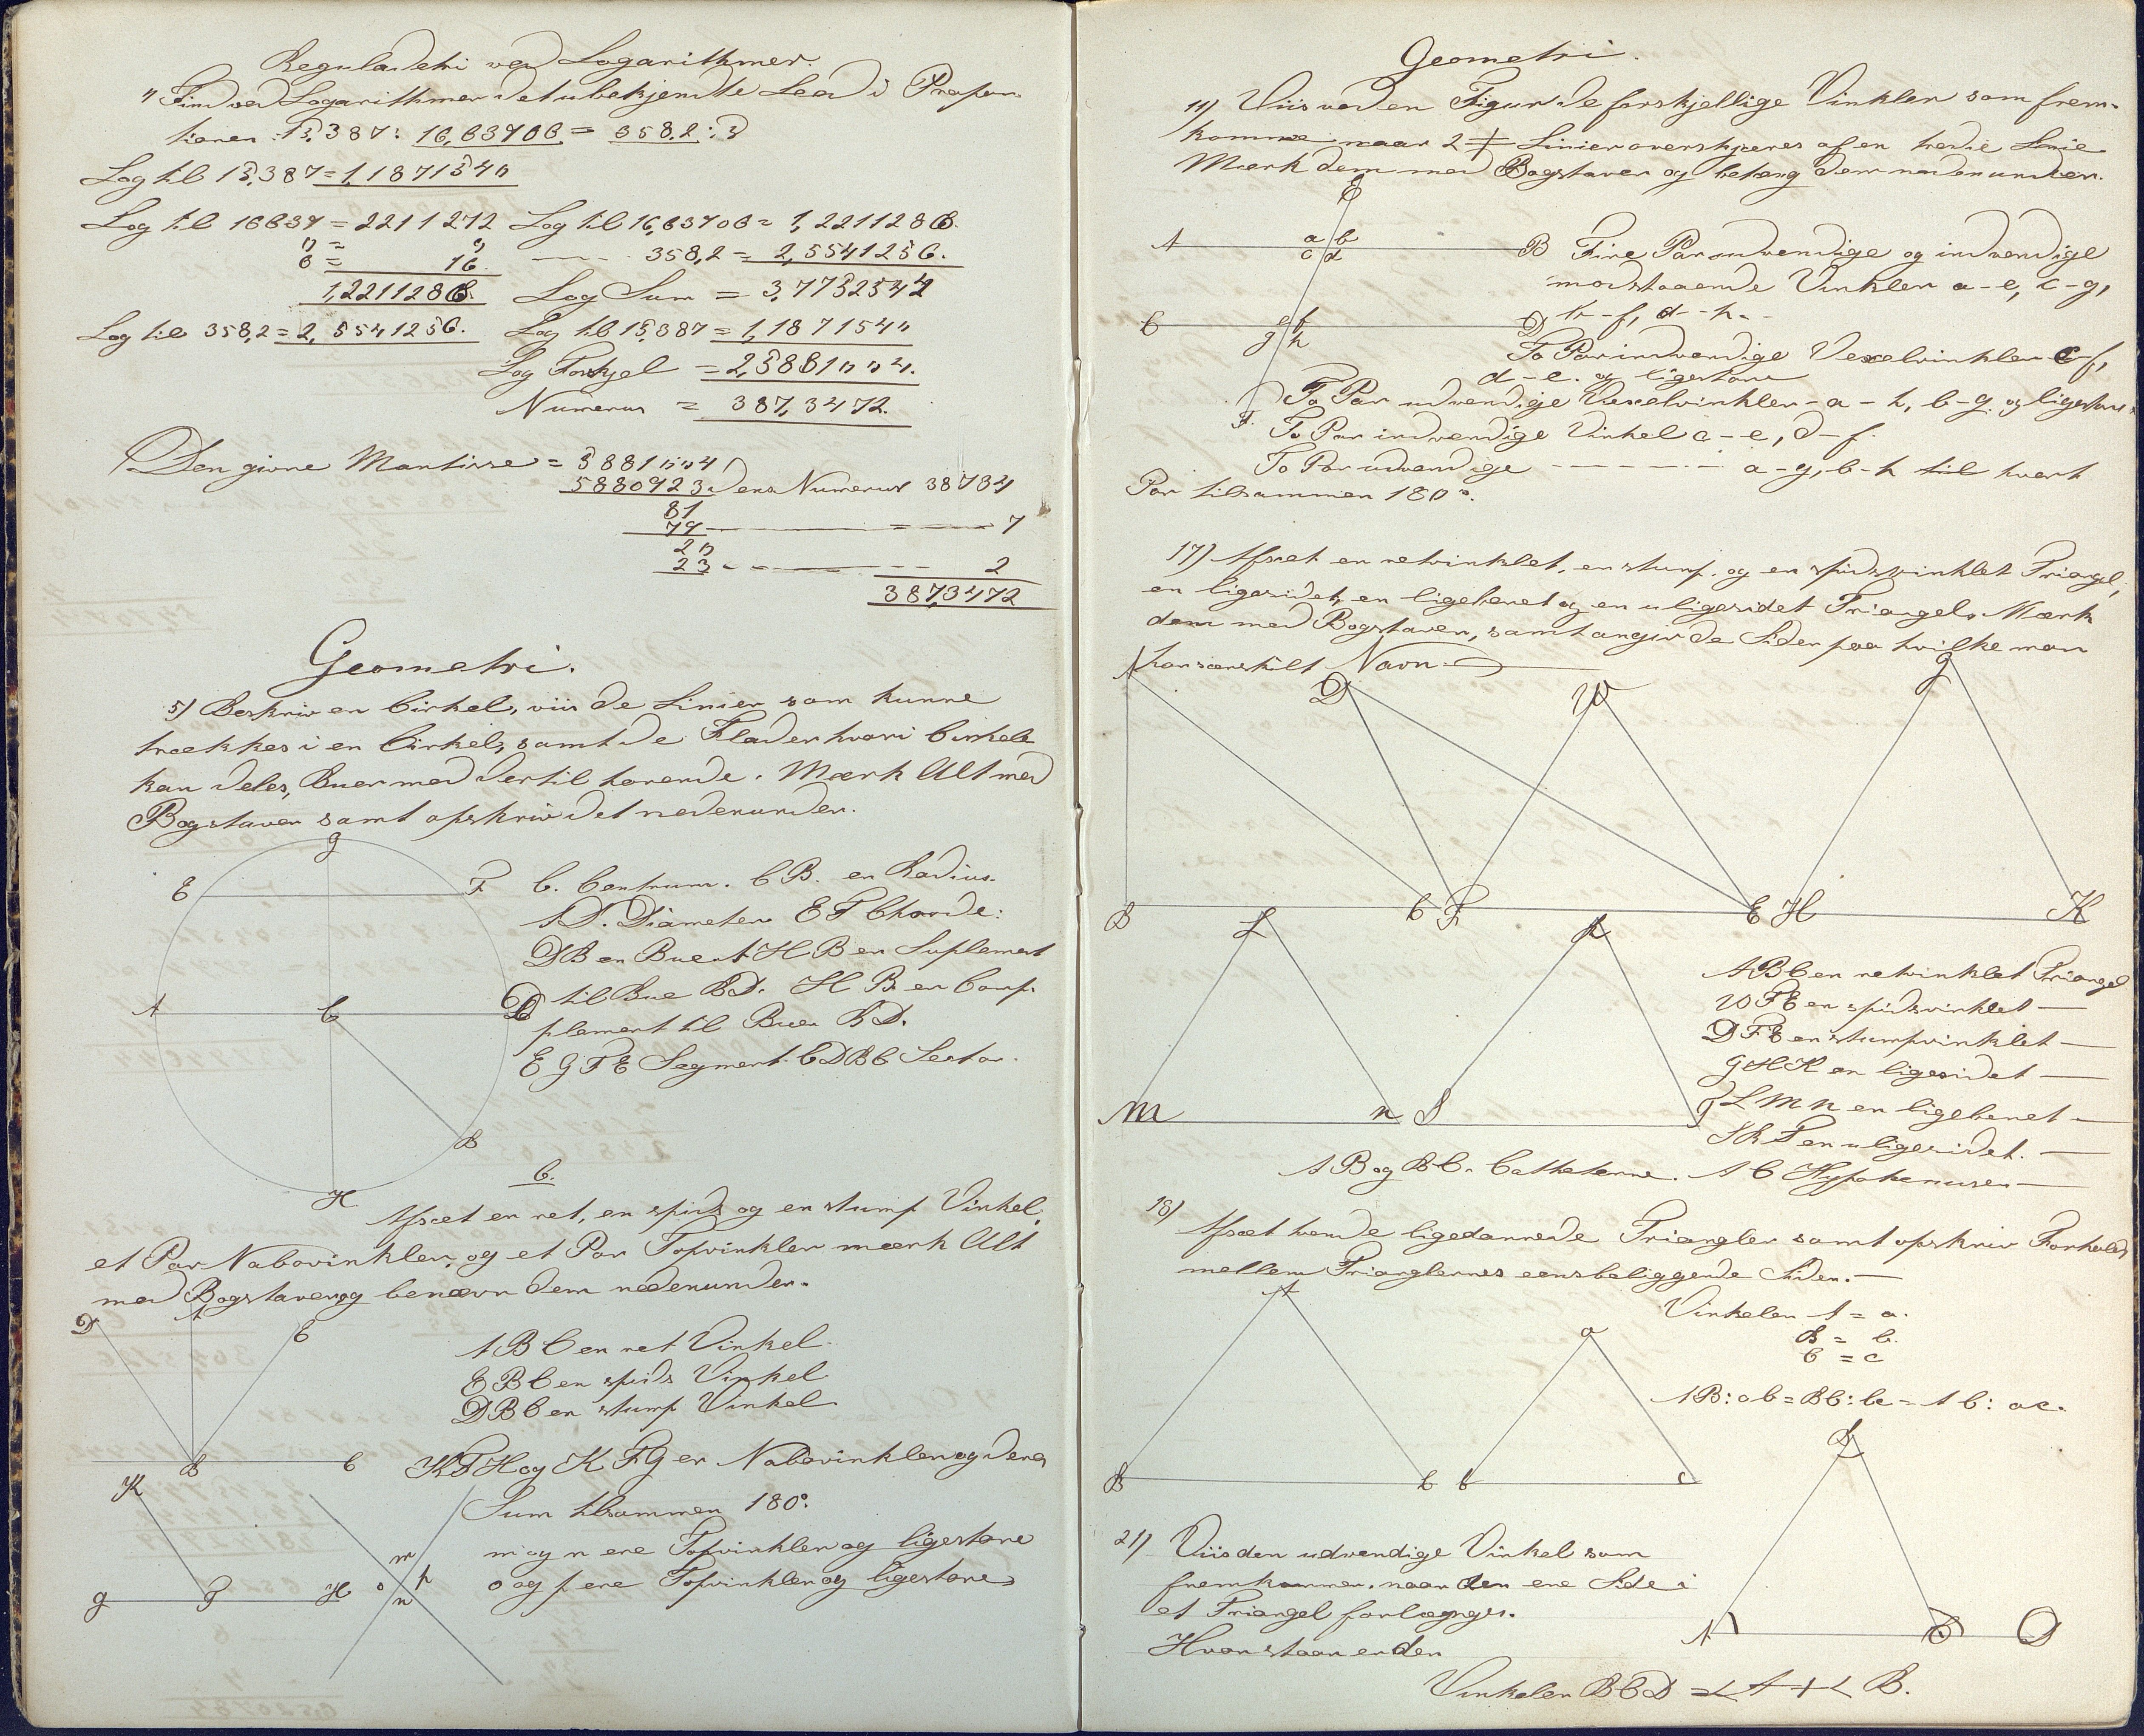 Reguladetri ved Logarithmer.
Find ved Logarithmer det ubekjendte Led i Propor-
tionen 15,387 : 16,63706 = 358,2 :
Log til 15,387 = 1,1871540
Log til 16637 = 2211272 Log til 16,63706 = 1,2211288.
0 = 0 358,2 = 2,5541256.
6 = 16
1,2211288. Log Sum = 3,7752544
Log til 358,2 = 2,5541256. Log til 15,387 = 1,1871540
Log Forskjel = 2,5881004.
Numerus = 387,3472.
Den givne Mantisse = 5881004
5880923 dens Numerus 38734
81
79 7
20
23 2
387,3472
Geometri.
5) Beskriv en Cirkel, viis de Linier som kunne
trækkes i en Cirkel, samt de Flader hvori Cirkelen
kan deles, Buer med dertil hørende. Mærk Alt med
Bogstaver samt opskriv det nedenunder.
g
E F C. Centrum. CB. en Radius.
AD. Diameter EF Chorde:
DB en Bue HB en Suplement
A C D til Bue BD. HB en Com-
plement til Buen BD.
EGFE Segment. CDBC Sector.
B
H
6.
Afsæt en ret, en spids og en stump Vinkel,
et Par Nabovinkler, og et Par Topvinkler mærk Alt
med Bogstaver og benævn dem nedenunder.
D A E
ABC en ret Vinkel.
EBC en spids Vinkel
DBC en stump Vinkel
B C
KFH og KFG er Nabovinkler og deres
K
Sum tilsammen 180°.
m og n ere Topvinkler og ligestore
m
o og p ere Topvinkler og ligestore
o p
n
g F H
Geometri.
11) Viis ved en Figur de forskjellige Vinkler som frem-
komme naar 2 ≠ Linier overskjæres af en tredie Linie
Mærk dem med Bogstaver og betegn dem nedenunder.
E
A a b B Fire Par udvendige og indvendige
c d
modstaaende Vinkler a-e, c-g,
b-f, d-h.
C e f D
g h
To Par indvendige Vexelvinkler c-f,
d-e. og ligestore
To Par udvendige Vexelvinkler - a-h, b-g. og ligestore
F. To Par indvendige Vinkel c-e, d-f.
To Par udvendige a-g, b-h til hvert
Par tilsammen 180°.
17) Afsæt en retvinklet, en stump. og en spidsvinklet Triangel,
en ligesidet, en ligebenet og en uligesidet Triangel. Mærk
dem med Bogstaver, samt angiv de Sider paa hvilke man
har særskilt Navn.
A D W g
B C F E H K
L R
ABC en retvinklet Triangel
WFE en spidsvinklet
DFE en stumpvinklet
GHK en ligesidet
LMN en ligebenet
SRT en uligesidet.
M n S T
AB og BC. Catheterne. AC Hypotenusen
18)
Afsæt tvende ligedannede Triangler samt opskriv Forholdet
mellem Trianglernes eensbeliggende Sider.
A
Vinkelen A = a.
B = b.
C = c
a
AB : ab = BC : bc = AC : ac.
B C b c
B
21) Viis den udvendige Vinkel som
fremkommer, naar den ene Side i
et Triangel forlænges.
Hvor stor er den
A C D
Vinkelen BCD = ∠ A + ∠ B.